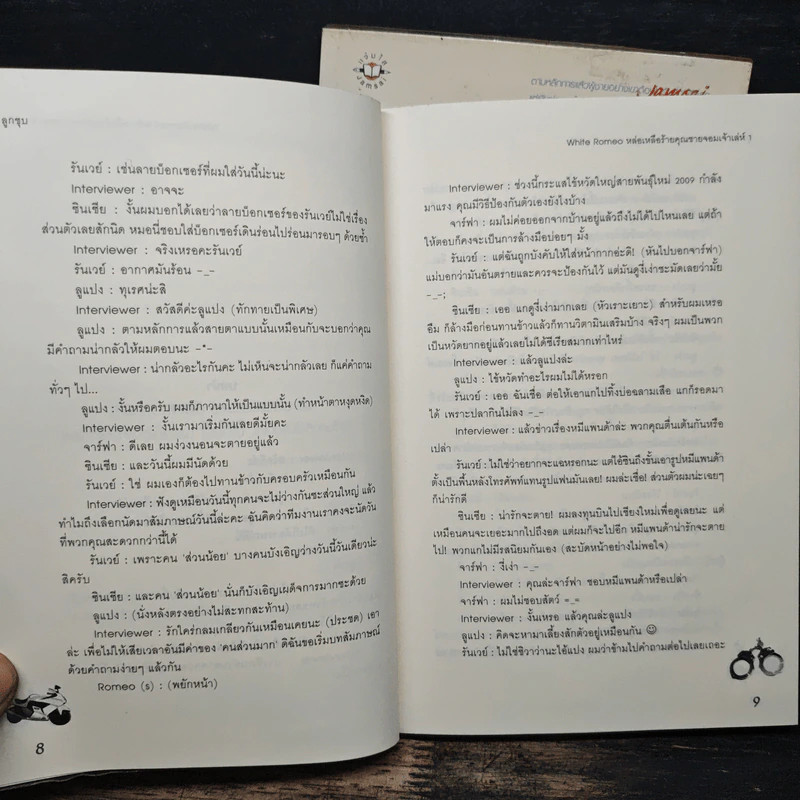 ตามหลักการแล้วผู้ชายอย่างเขาต้อง
ลูกชุบ
รันเวย์ : เช่นลายบ็อกเซอร์ที่ผมใส่วันนี้น่ะนะ
Interviewer : อาจจะ
ซินเซีย : งั้นผมบอกได้เลยว่าลายบ็อกเซอร์ของรันเวย์ไม่ใช่เรื่อง
ส่วนตัวเลยสักนิด หมอนี่ชอบใส่บ็อกเซอร์เดินร่อนไปร่อนมารอบๆ ด้วยซ้ำ
Interviewer : จริงเหรอคะรันเวย์
รันเวย์ : อากาศมันร้อน -_-
ลูแปง : ทุเรศน่ะสิ
Interviewer : สวัสดีค่ะลูแปง (ทักทายเป็นพิเศษ)
ลูแปง : ตามหลักการแล้วสายตาแบบนั้นเหมือนกับจะบอกว่าคุณ
มีคำถามน่ากลัวให้ผมตอบนะ -*-
Interviewer : น่ากลัวอะไรกันคะ ไม่เห็นจะน่ากลัวเลย ก็แค่คำถาม
ทั่วๆ ไป...
ลูแปง : งั้นหรือครับ ผมก็ภาวนาให้เป็นแบบนั้น (ทำหน้าตาหงุดหงิด)
Interviewer : งั้นเรามาเริ่มกันเลยดีมั้ยคะ
จาร์ฟา : ดีเลย ผมง่วงนอนจะตายอยู่แล้ว
ซินเซีย : และวันนี้ผมมีนัดด้วย
รันเวย์ : ใช่ ผมเองก็ต้องไปทานข้าวกับครอบครัวเหมือนกัน
Interviewer : ฟังดูเหมือนวันนี้ทุกคนจะไม่ว่างกันซะส่วนใหญ่ แล้ว
ทำไมถึงเลือกนัดมาสัมภาษณ์วันนี้ล่ะคะ ฉันคิดว่าทีมงานเราคงจะนัดวัน
ที่พวกคุณสะดวกกว่านี้ได้
รันเวย์ : เพราะคน 'ส่วนน้อย' บางคนบังเอิญว่างวันนี้วันเดียวน่ะ
สิครับ
ซินเซีย : และคน 'ส่วนน้อย' นั่นก็บังเอิญเผด็จการมากซะด้วย
ลูแปง : (นั่งหลังตรงอย่างไม่สะทกสะท้าน)
Interviewer : รักใคร่กลมเกลียวกันเหมือนเคยนะ (ประชด) เอา
ล่ะ เพื่อไม่ให้เสียเวลาอันมีค่าของ 'คนส่วนมาก' ดิฉันขอเริ่มบทสัมภาษณ์
ด้วยคำถามง่ายๆ แล้วกัน
Romeo (s) : (พยักหน้า)
8
White Romeo หล่อเหลือร้ายคุณชายจอมเจ้าเล่ห์ 1
Interviewer : ช่วงนี้กระแสไข้หวัดใหญ่สายพันธุ์ใหม่ 2009 กำลัง
มาแรง คุณมีวิธีป้องกันตัวเองยังไงบ้าง
จาร์ฟา : ผมไม่ค่อยออกจากบ้านอยู่แล้วถึงไม่ได้ไปไหนเลย แต่ถ้า
ให้ตอบก็คงจะเป็นการล้างมือบ่อยๆ มั้ง
รันเวย์ : แต่ฉันถูกบังคับให้ใส่หน้ากากอ่ะดิ! (หันไปบอกจาร์ฟา)
แม่บอกว่ามันอันตรายและควรจะป้องกันไว้ แต่มันดูงี่เง่าชะมัดเลยว่ามั้ย
-_-;
ซินเซีย : เออ แกดูงี่เง่ามากเลย (หัวเราะเยาะ) สำหรับผมเหรอ
อืม ก็ล้างมือก่อนทานข้าวแล้วก็ทานวิตามินเสริมบ้าง จริงๆ ผมเป็นพวก
เป็นหวัดยากอยู่แล้วเลยไม่ได้ซีเรียสมากเท่าไหร่
Interviewer : แล้วลูแปงล่ะ
ลูแปง : ไข้หวัดทำอะไรผมไม่ได้หรอก
รันเวย์ : เออ ฉันเชื่อ ต่อให้เอาแกไปทิ้งบ่อฉลามเสือ แกก็รอดมา
ได้ เพราะปลากินไม่ลง -_-
Interviewer : แล้วข่าวเรื่องหมีแพนด้าล่ะ พวกคุณตื่นเต้นกันหรือ
เปล่า
รันเวย์ : ไม่ใช่ว่าอยากจะแฉหรอกนะ แต่ไอ้ซินถึงขั้นเอารูปหมีแพนด้า
ตั้งเป็นพื้นหลังโทรศัพท์แทนรูปแฟนมันเลย! ผมล่ะเชื่อ! ส่วนตัวผมน่ะเฉยๆ
ก็น่ารักดี
ซินเซีย : น่ารักจะตาย! ผมลงทุนบินไปเชียงใหม่เพื่อดูเลยนะ แต่
เหมือนคนจะเยอะมากไปถึงอด แต่ผมก็จะไปอีก หมีแพนด้าน่ารักจะตาย
ไป! พวกแกไม่มีรสนิยมกันเอง (สะบัดหน้าอย่างไม่พอใจ)
จาร์ฟา : งี่เง่า -_-
Interviewer : คุณล่ะจาร์ฟา ชอบหมีแพนด้าหรือเปล่า
จาร์ฟา : ผมไม่ชอบสัตว์ =_=
Interviewer : งั้นเหรอ แล้วคุณล่ะลูแปง
ลูแปง : คิดจะหามาเลี้ยงสักตัวอยู่เหมือนกัน ☺
รันเวย์ : ไม่ใช่ชิวาว่านะไอ้แปง ผมว่าข้ามไปคำถามต่อไปเลยเถอะ
9